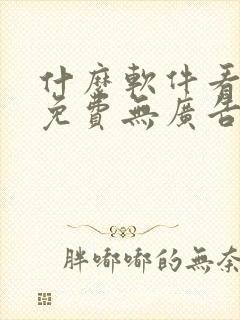 什麼軟件看
免費無廣告
胖嘟嘟的無奈